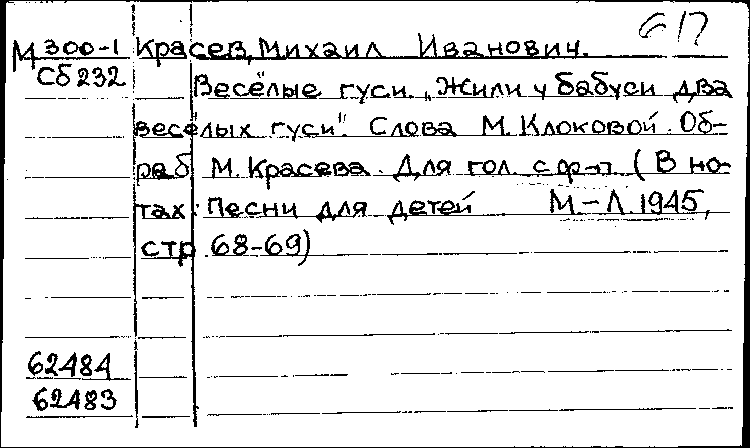 617
М 300-1 Красев, Михаил Иванович.
Сб 232
Весёлые гуси. „Жили у бабуси два
весёлых гуси". Слова М. Клоковой. Об-
раб М. Красева. Для гол. с ф-п. (В но-
тах: Песни для детей М-Л. 1945,
стр. 68-69)
62484
62483